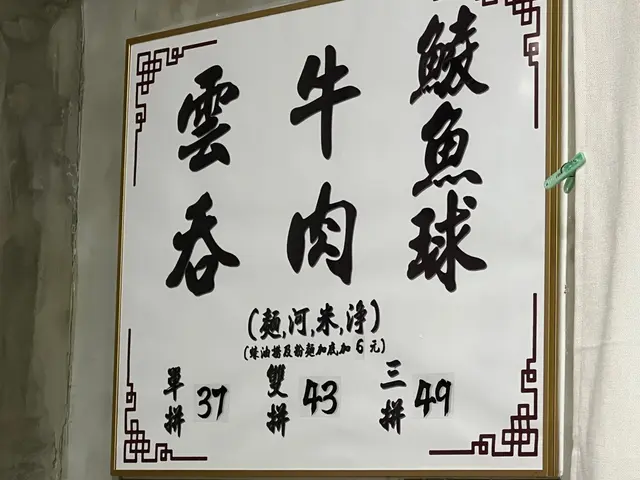 鯪魚球
牛肉
雲吞
(麵,河,米,淨)
(辣油撈及粉麵加底,加6元)
單拼 37
雙拼 43
三拼 49